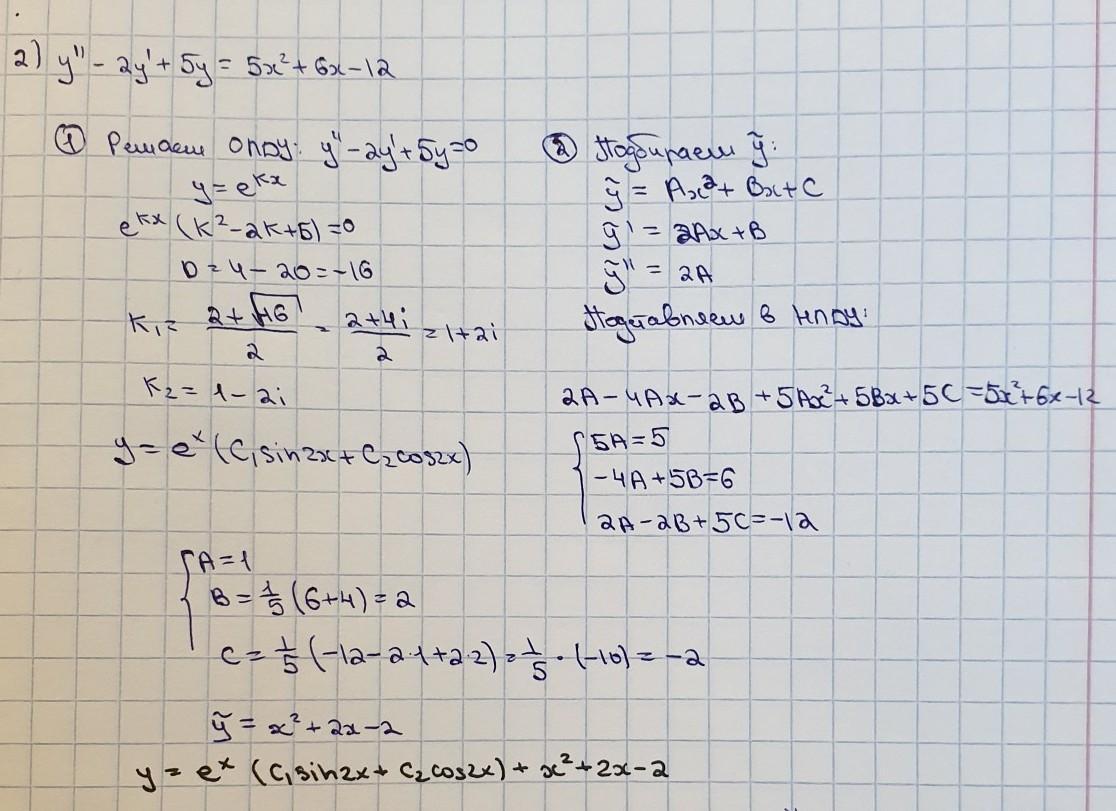 2) y'' - 2y' + 5y = 5x² + 6x - 12
① Решаем ОЛДУ: y'' - 2y' + 5y = 0
y = e^{kx}
e^{kx} (k² - 2k + 5) = 0
D = 4 - 20 = -16
k₁ = (2 + √-16)/2 = (2 + 4i)/2 = 1 + 2i
k₂ = 1 - 2i
y = e^x (C₁sin2x + C₂cos2x)
② Подбираем ỹ:
ỹ = Ax² + Bx + C
ỹ' = 2Ax + B
ỹ'' = 2A
Подставляем в НЛДУ:
2A - 4Ax - 2B + 5Ax² + 5Bx + 5C = 5x² + 6x - 12
{ 5A = 5
-4A + 5B = 6
2A - 2B + 5C = -12
{ A = 1
B = 1/5 (6+4) = 2
C = 1/5 (-12 - 2·1 + 2·2) = 1/5 · (-10) = -2
ỹ = x² + 2x - 2
y = e^x (C₁sin2x + C₂cos2x) + x² + 2x - 2